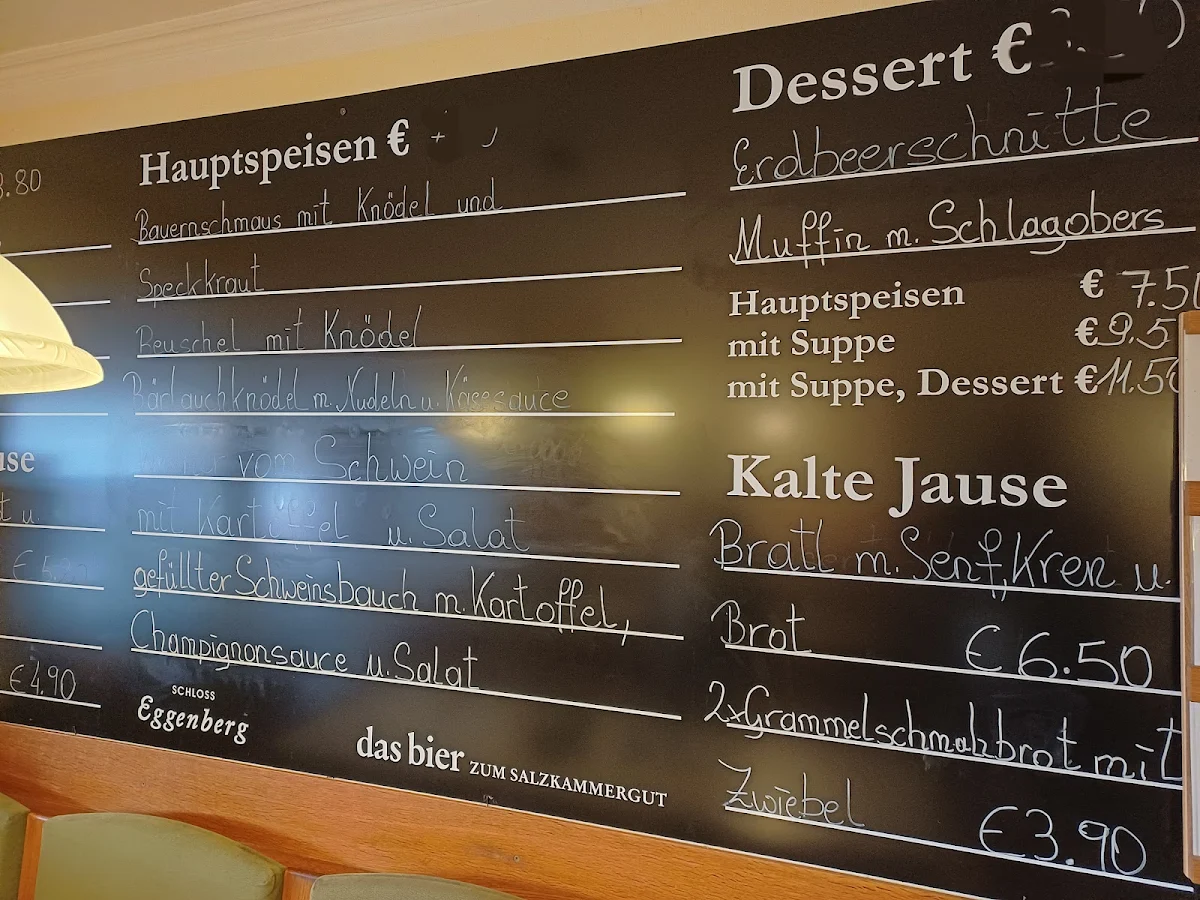 3.80
use
t u
€ 4.90
Hauptspeisen €
Bauernschmaus mit Knödel und
Speckkraut
Beuschel mit Knödel
Bärlauchknödel m. Nudeln u. Käsesauce
vom Schwein
mit Kartoffel u. Salat
gefüllter Schweinsbauch m. Kartoffel,
Champignonsauce u. Salat
SCHLOSS
Eggenberg
das bier ZUM SALZKAMMERGUT
Dessert €
Erdbeerschnitte
Muffin m. Schlagobers
Hauptspeisen € 7.50
mit Suppe € 9.5
mit Suppe, Dessert € 11.50
Kalte Jause
Bratl m. Senf, Kren u.
Brot € 6.50
2x Grammelschmalzbrot mit
Zwiebel € 3.90